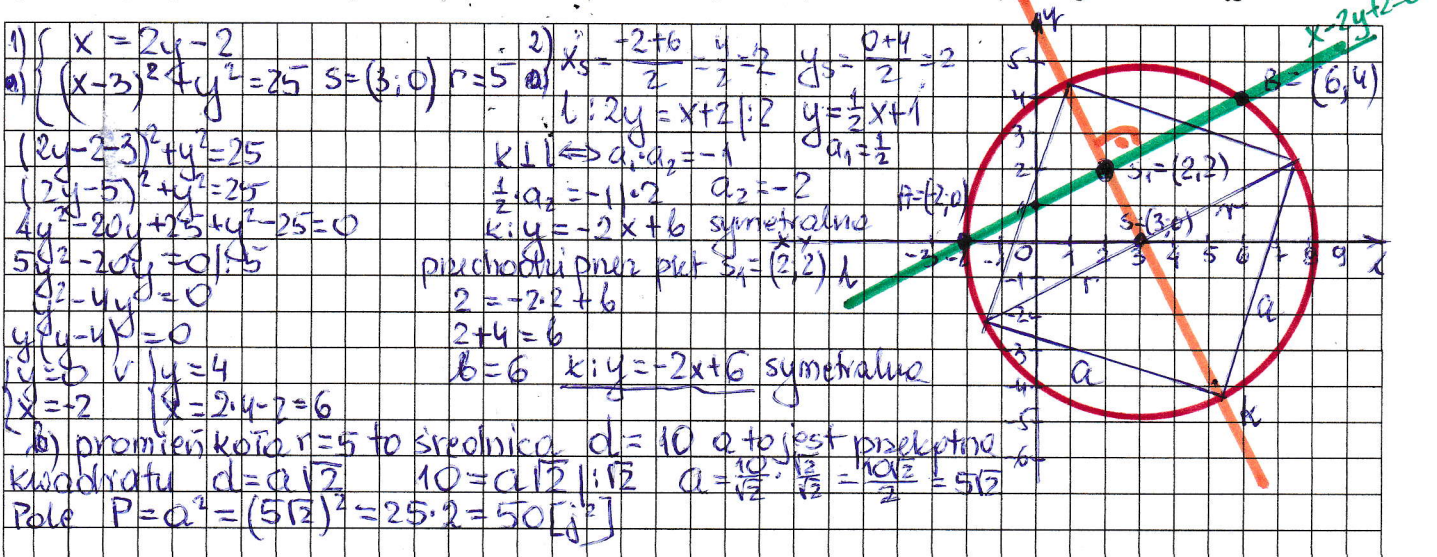 1) { x = 2y-2
a) { (x-3)² + y² = 25 S=(3;0) r=5
(2y-2-3)²+y²=25
(2y-5)²+y²=25
4y²-20y+25+y²-25=0
5y²-20y=0|:5
y²-4y=0
y(y-4)=0
{y=0 v {y=4
{x=-2 {x=2·4-2=6
2) xs = -2+6/2 = 4/2 = 2 ys = 0+4/2 = 2
a)
l: 2y = x+2|:2 y=1/2x+1
k⊥l ⟺ a₁·a₂=-1 a₁=1/2
1/2·a₂=-1|·2 a₂=-2
k: y=-2x+b symetralna
przechodzi przez pkt S₁=(2,2)
2=-2·2+b
2+4=b
b=6 k: y=-2x+6 symetralna
b) promień koła r=5 to średnica d=10 a to jest przekątna
kwadratu d=a√2 10=a√2|:√2 a=10/√2·√2/√2=10√2/2=5√2
Pole P=a²=(5√2)²=25·2=50[j²]
y
x-2y+2=0
B=(6,4)
S₁=(2,2)
A=(-2,0)
S=(3;0)
r
r
a
a
l
k
5
4
3
2
1
-3 -2 -1 0 1 2 3 4 5 6 7 8 9 x
-1
-2
-3
-4
-5
-6